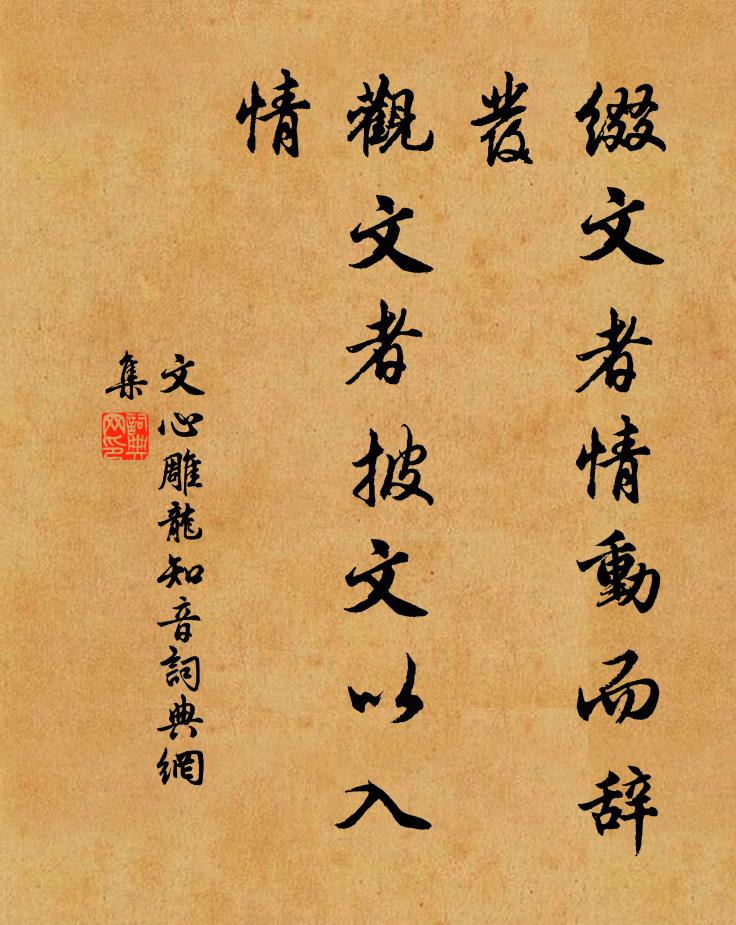 綴文者情動而辞
發
觀文者披文以入
情
文心雕龍知音詞典網
集
詞典
网印